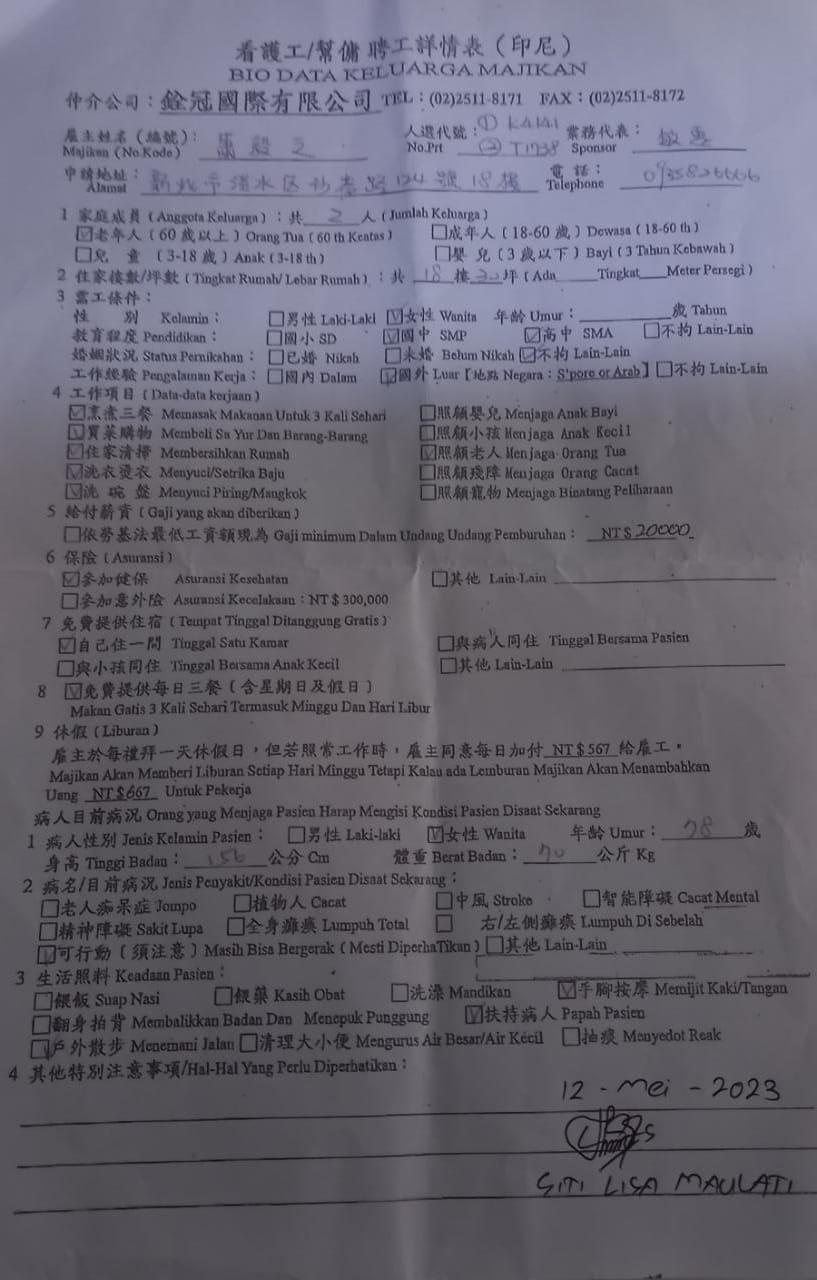 看護工/幫傭 聘工詳情表（印尼）
BIO DATA KELUARGA MAJIKAN
仲介公司：銓冠國際有限公司 TEL：(02)2511-8171 FAX：(02)2511-8172
雇主姓名（編號）： 人選代號：① K4141 業務代表：
Majikan (No.Kode) No.Prt ② T1738 Sponsor
申請地址： 新北市淡水区 路124號18樓 電話：
Alamat Telephone
1 家庭成員（Anggota Keluarga）：共 2 人（Jumlah Keluarga）
☑老年人（60歲以上）Orang Tua（60 th Keatas） □成年人（18-60歲）Dewasa（18-60 th）
□兒 童（3-18歲）Anak（3-18 th） □嬰 兒（3歲以下）Bayi（3 Tahun Kebawah）
2 住家樓數/坪數（Tingkat Rumah/ Lebar Rumah）：共 18 樓 30 坪（Ada Tingkat Meter Persegi）
3 需工條件：
性 別 Kelamin： □男性 Laki-Laki ☑女性 Wanita 年齡 Umur： 歲 Tahun
教育程度 Pendidikan： □國小 SD ☑國中 SMP ☑高中 SMA □不拘 Lain-Lain
婚姻狀況 Status Pernikahan： □已婚 Nikah □未婚 Belum Nikah ☑不拘 Lain-Lain
工作經驗 Pengalaman Kerja： □國內 Dalam ☑國外 Luar【地點 Negara：S'pore or Arab】□不拘 Lain-Lain
4 工作項目（Data-data kerjaan）
☑烹煮三餐 Memasak Makanan Untuk 3 Kali Sehari □照顧嬰兒 Menjaga Anak Bayi
☑買菜購物 Membeli Sa Yur Dan Barang-Barang □照顧小孩 Menjaga Anak Kecil
☑住家清掃 Membersihkan Rumah ☑照顧老人 Menjaga Orang Tua
☑洗衣燙衣 Menyuci/Setrika Baju □照顧殘障 Menjaga Orang Cacat
☑洗 碗 盤 Menyuci Piring/Mangkok □照顧寵物 Menjaga Binatang Peliharaan
5 給付薪資（Gaji yang akan diberikan）
□依勞基法最低工資額現為 Gaji minimum Dalam Undang Undang Pemburuhan： NT$ 20000
6 保險（Asuransi）
☑參加健保 Asuransi Kesehatan □其他 Lain-Lain
□參加意外險 Asuransi Kecelakaan：NT$300,000
7 免費提供住宿（Tempat Tinggal Ditanggung Gratis）
☑自己住一間 Tinggal Satu Kamar □與病人同住 Tinggal Bersama Pasien
□與小孩同住 Tinggal Bersama Anak Kecil □其他 Lain-Lain
8 ☑免費提供每日三餐（含星期日及假日）
Makan Gatis 3 Kali Sehari Termasuk Minggu Dan Hari Libur
9 休假（Liburan）
雇主於每禮拜一天休假日，但若照常工作時，雇主同意每日加付 NT$567 給雇工。
Majikan Akan Memberi Liburan Setiap Hari Minggu Tetapi Kalau ada Lemburan Majikan Akan Menambahkan
Uang NT$667 Untuk Pekerja
病人目前病況 Orang yang Menjaga Pasien Harap Mengisi Kondisi Pasien Disaat Sekarang
1 病人性別 Jenis Kelamin Pasien： □男性 Laki-laki ☑女性 Wanita 年齡 Umur： 78 歲
身高 Tinggi Badan： 156 公分 Cm 體重 Berat Badan： 70 公斤 Kg
2 病名/目前病況 Jenis Penyakit/Kondisi Pasien Disaat Sekarang：
□老人痴呆症 Jompo □植物人 Cacat □中風 Stroke □智能障礙 Cacat Mental
□精神障礙 Sakit Lupa □全身癱瘓 Lumpuh Total □ 右/左側癱瘓 Lumpuh Di Sebelah
☑可行動（須注意）Masih Bisa Bergerak（Mesti DiperhaTikan）□其他 Lain-Lain
3 生活照料 Keadaan Pasien：
□餵飯 Suap Nasi □餵藥 Kasih Obat □洗澡 Mandikan ☑手腳按摩 Memijit Kaki/Tangan
□翻身拍背 Membalikkan Badan Dan Menepuk Punggung ☑扶持病人 Papah Pasien
☑戶外散步 Menemani Jalan □清理大小便 Mengurus Air Besar/Air Kecil □抽痰 Menyedot Reak
4 其他特別注意事項/Hal-Hal Yang Perlu Diperhatikan：
12 - Mei - 2023
SITI LISA MAULATI